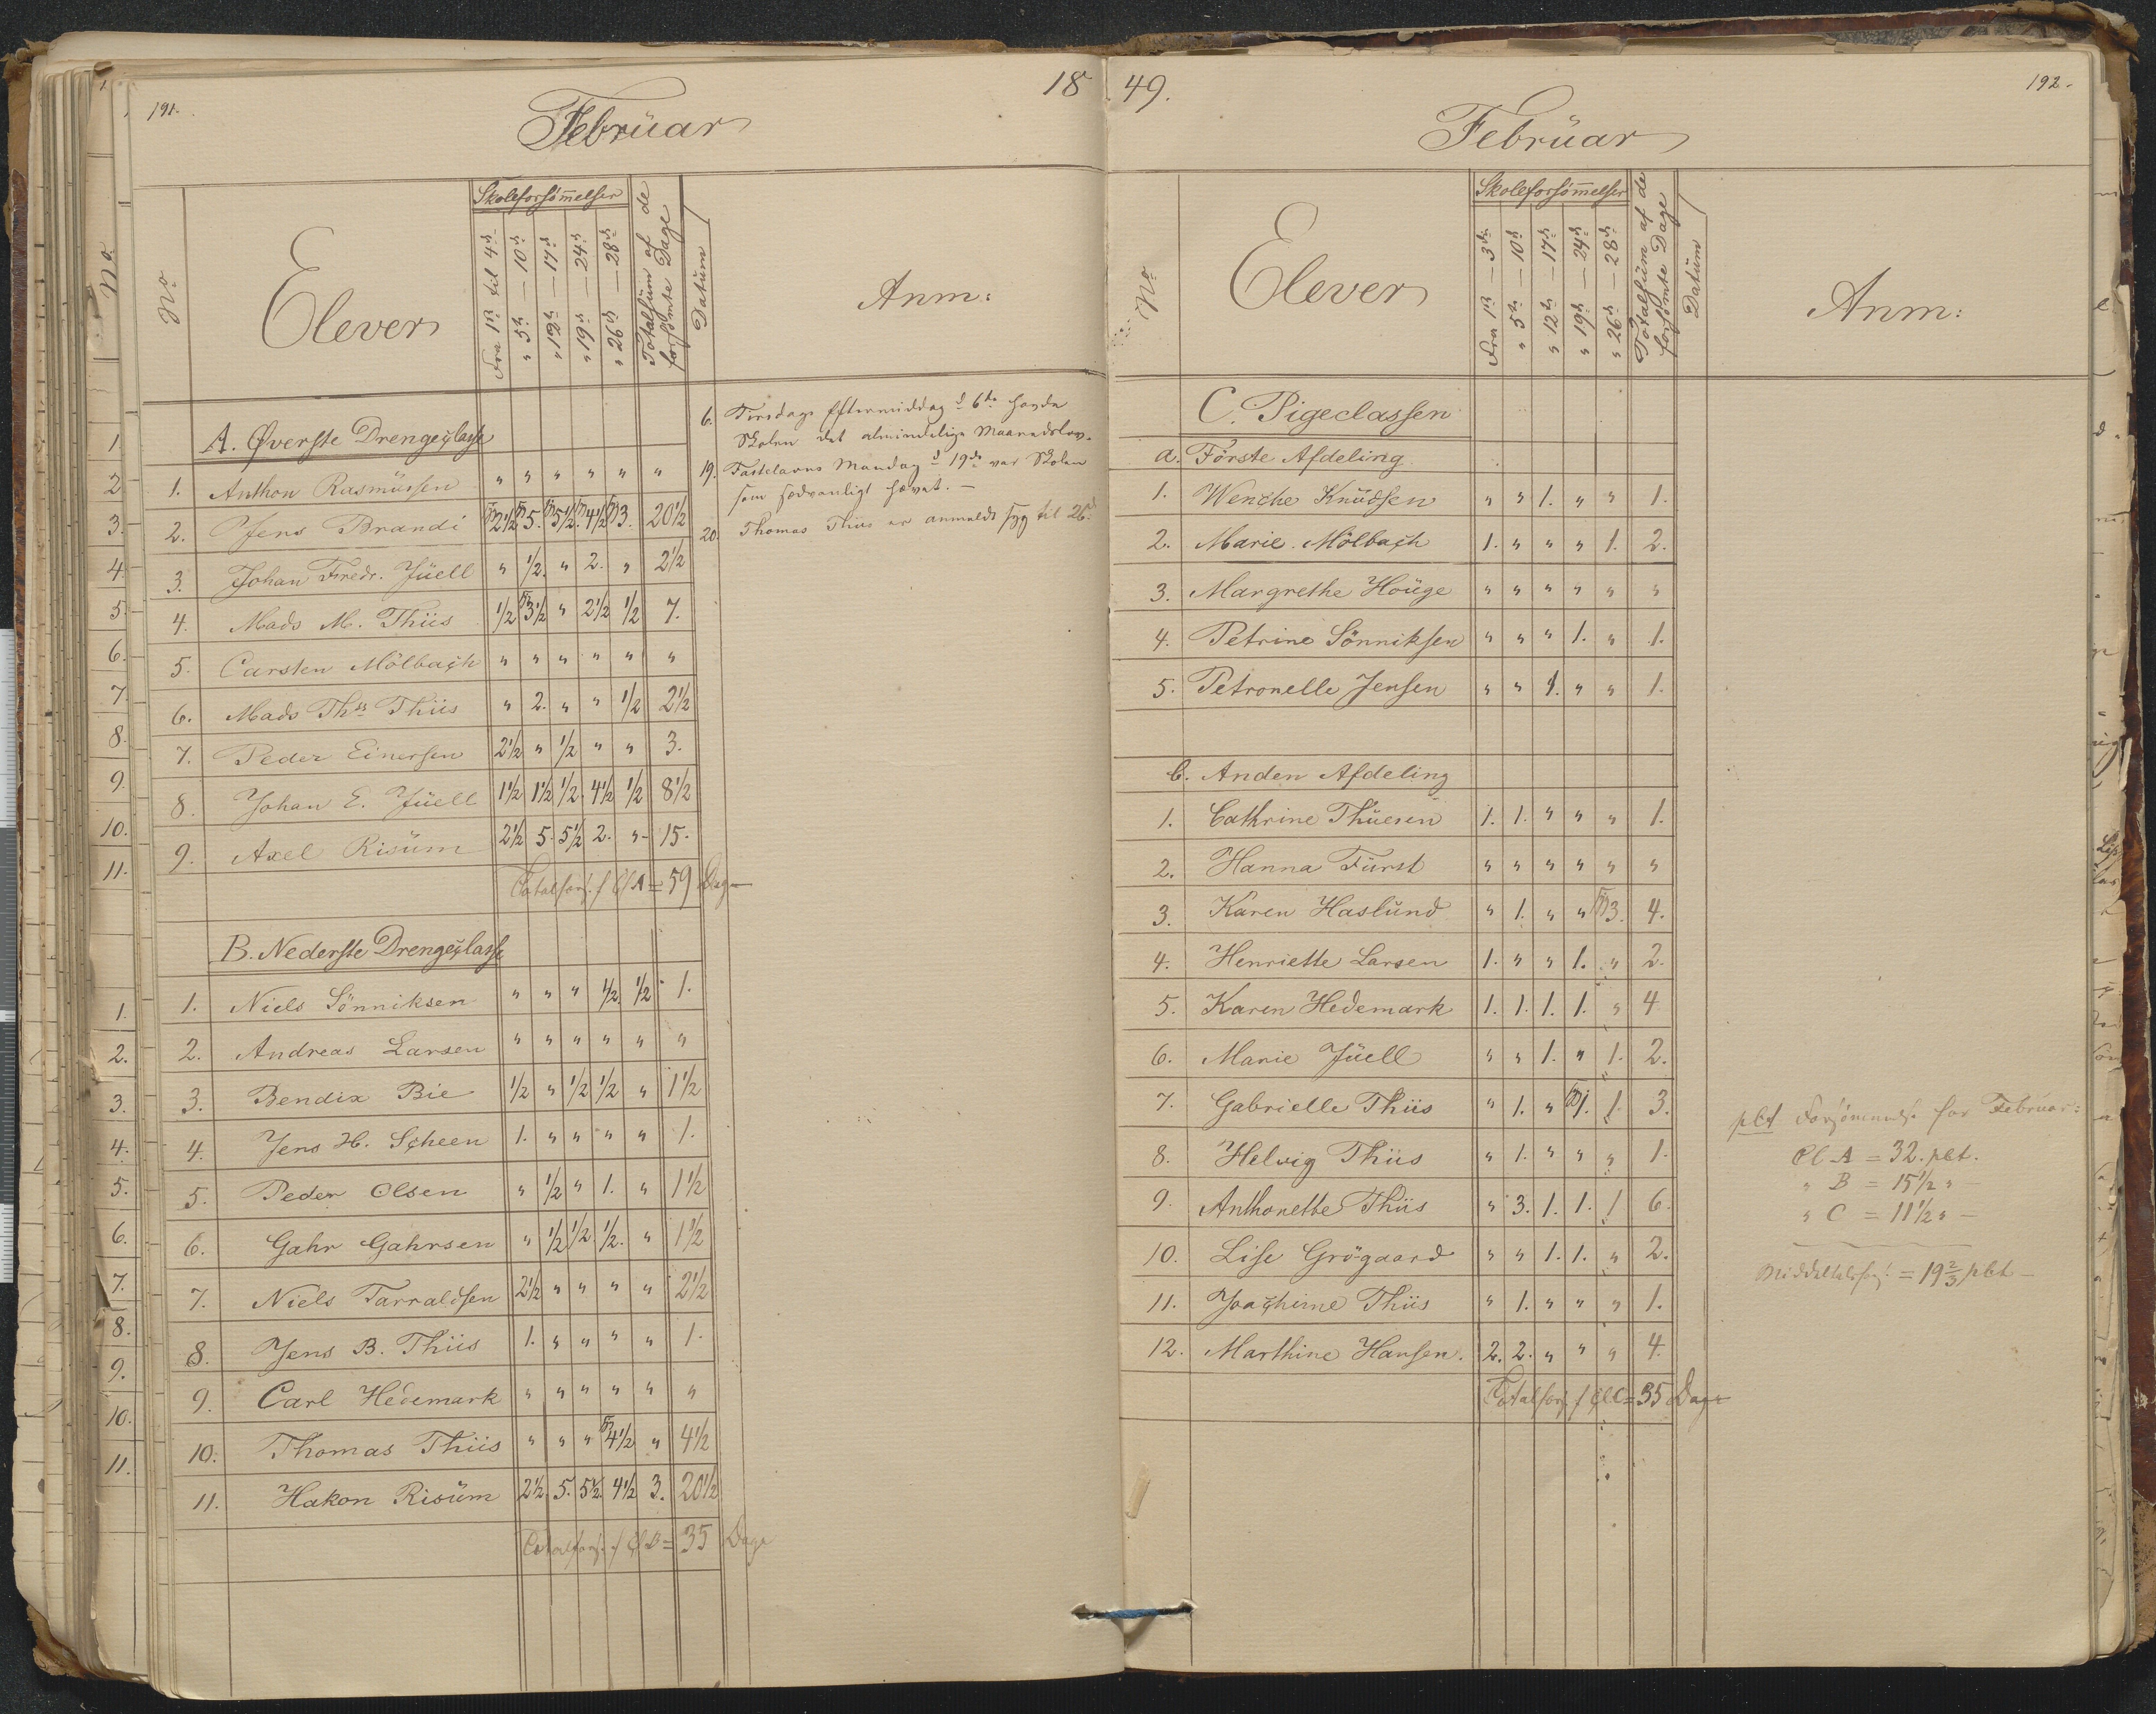 191.
18
Februar
No.
Elever
Skoleforsømmelser
Fra 1ste til 4de
" 5te — 10de
" 12te — 17de
" 19de — 24de
" 26de — 28de
Totalsum af de forsømte Dage
Datum
Anm:
A. Øverste Drengeclasse
1. Anthon Rasmussen " " " " " "
2. Jens Brandi 2½ 5. 5½. 4½ 3. 20½
3. Johan Fredr. Juell " ½. " 2. " 2½
4. Mads M. Thiis ½ 3½ " 2½ ½ 7.
5. Carsten Mölbach " " " " " "
6. Mads Ths Thiis " 2. " " ½ 2½
7. Peder Einersen 2½ " ½ " " 3.
8. Johan E. Juell 1½ 1½ ½. 4½ ½ 8½
9. Axel Risum 2½ 5. 5½ 2. " 15.
Totalfors. f Cl A = 59 Dage
B. Nederste Drengeclasse
1. Niels Sönniksen " " " ½. ½ 1.
2. Andreas Larsen " " " " " "
3. Bendix Bie ½ " ½ ½ " 1½
4. Jens H. Scheen 1. " " " " 1.
5. Peder Olsen " ½ " 1. " 1½
6. Gahr Gahrsen " ½ ½ ½. " 1½
7. Niels Tarraldsen 2½ " " " " 2½
8. Jens B. Thiis 1. " " " " 1.
9. Carl Hedemark " " " " " "
10. Thomas Thiis " " " 4½ " 4½
11. Hakon Risum 2½ 5. 5½. 4½ 3. 20½
Totalfors. f Cl B = 35 Dage
6. Tirsdags Eftermiddag d 6te havde
Skolen det almindelige Maanedslov.
19. Fastelavns Mandag d 19de var Skolen
som sædvanligt hævet. —
20. Thomas Thiis er anmeldt syg til 26d
49.
192.
Februar
No.
Elever
Skoleforsømmelser
Fra 1ste — 3die
" 5te — 10de
" 12te — 17de
" 19de — 24de
" 26de — 28de
Totalsum af de forsømte Dage
Datum
Anm:
C. Pigeclassen
a. Förste Afdeling
1. Wenche Knudsen " " 1. " " 1.
2. Marie Mölbach 1. " " " 1. 2.
3. Margrethe Houge " " " " " "
4. Petrine Sönniksen " " " 1. " 1.
5. Petronelle Jensen " " 1. " " 1.
b. Anden Afdeling
1. Cathrine Thuesen 1. 1. " " " 1.
2. Hanna Fürst " " " " " "
3. Karen Haslund " 1. " " 3. 4.
4. Henriette Larsen 1. " " 1. " 2.
5. Karen Hedemark 1. 1. 1. 1. " 4
6. Marie Juell " " 1. " 1. 2.
7. Gabrielle Thiis " 1. " 1. 1. 3.
8. Helvig Thiis " 1. " " " 1.
9. Anthonette Thiis " 3. 1. 1. 1 6.
10. Lise Grögaard " " 1. 1. " 2.
11. Joachime Thiis " 1. " " " 1.
12. Marthine Hansen. 2. 2. " " " 4.
Totalfors. f Cl C = 35 Dage
pCt Forsömmelse for Februar:
Cl. A = 32. pct.
" B = 15½ " —
" C = 11½ " —
Middeltalsfors. = 19⅔ pct —